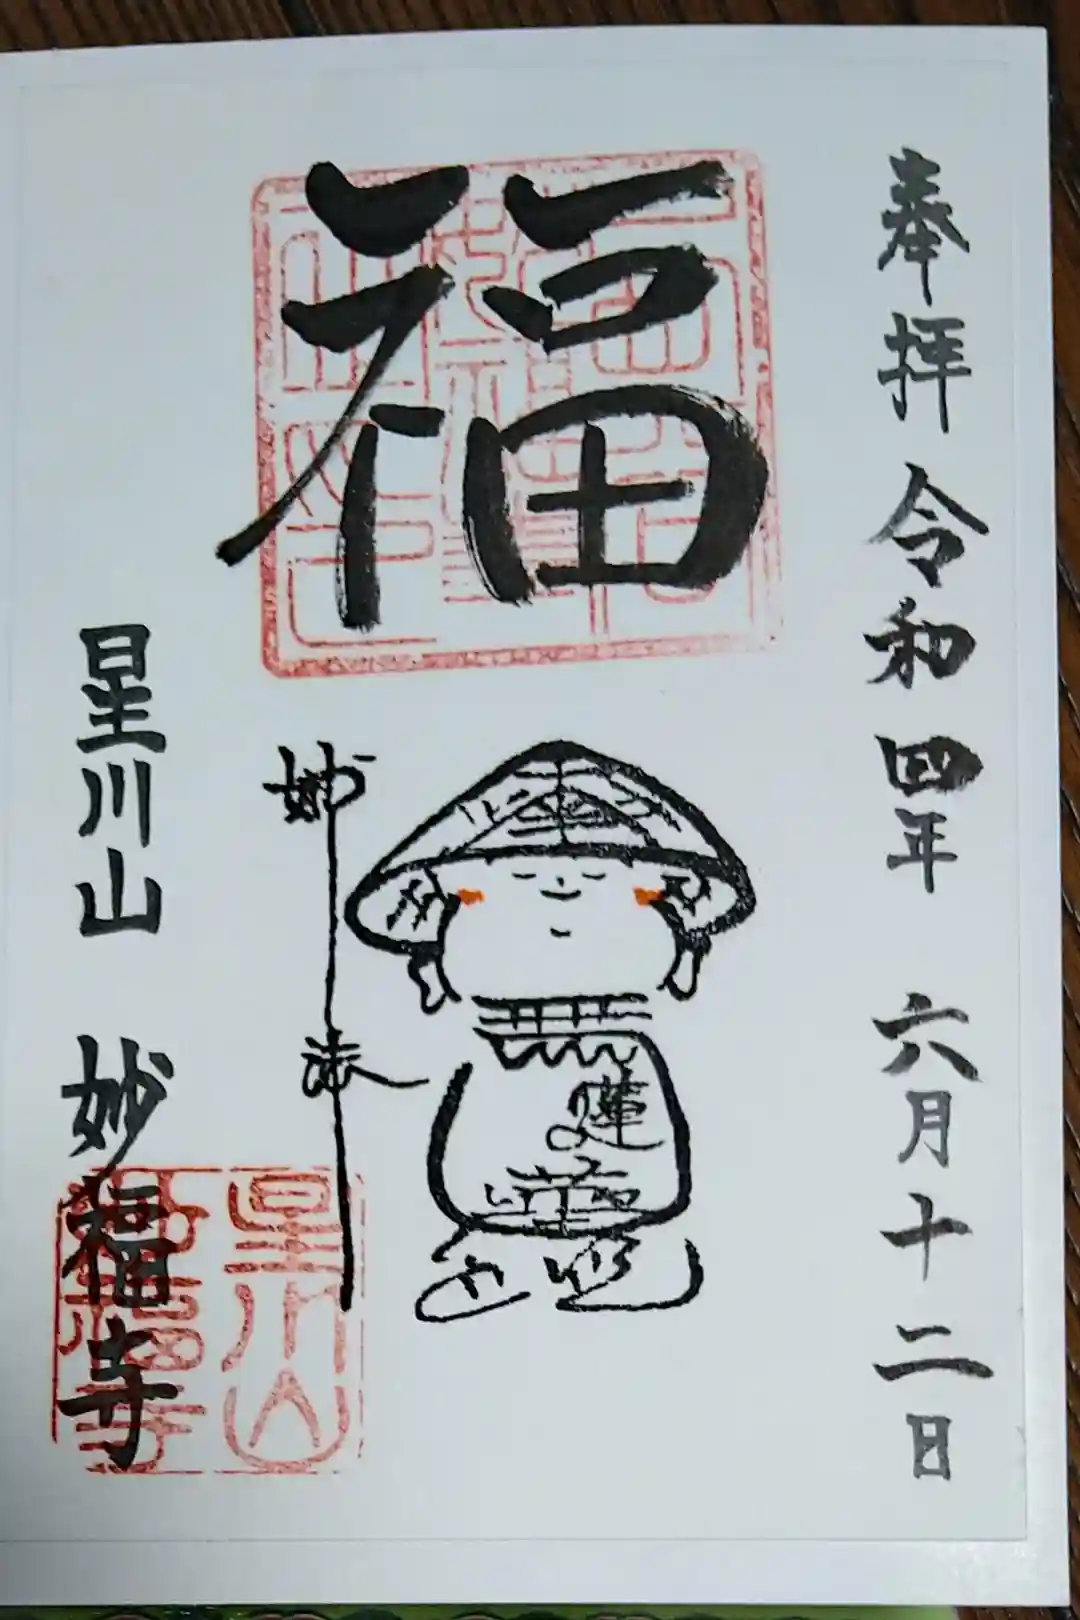 奉拝 令和四年 六月十二日
福
妙
法
蓮
華
星川山 妙福寺
星川山
妙福寺